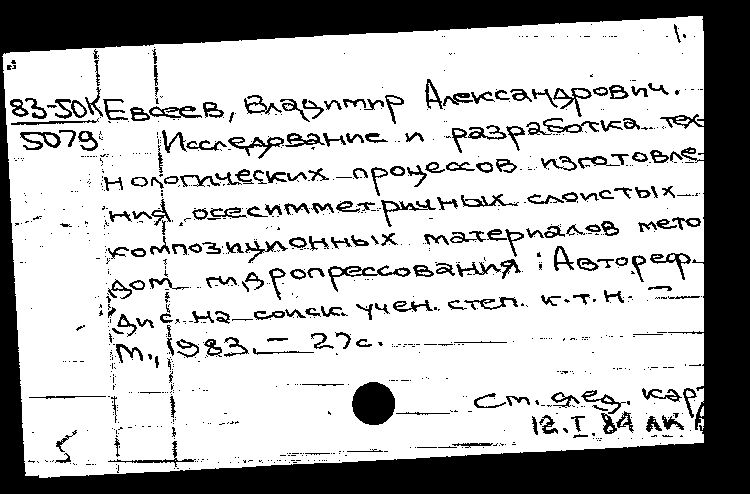 1.
83-50К Евсеев, Владимир Александрович.
5079 Исследование и разработка тех-
нологических процессов изготовле-
ния осесимметричных слоистых
композиционных материалов мето
дом гидропрессования : Автореф.
Дис. на соиск. учен. степ. к.т.н. –
М., 1983. – 27с.
См. след. кар
12.I.84 ЛК
5